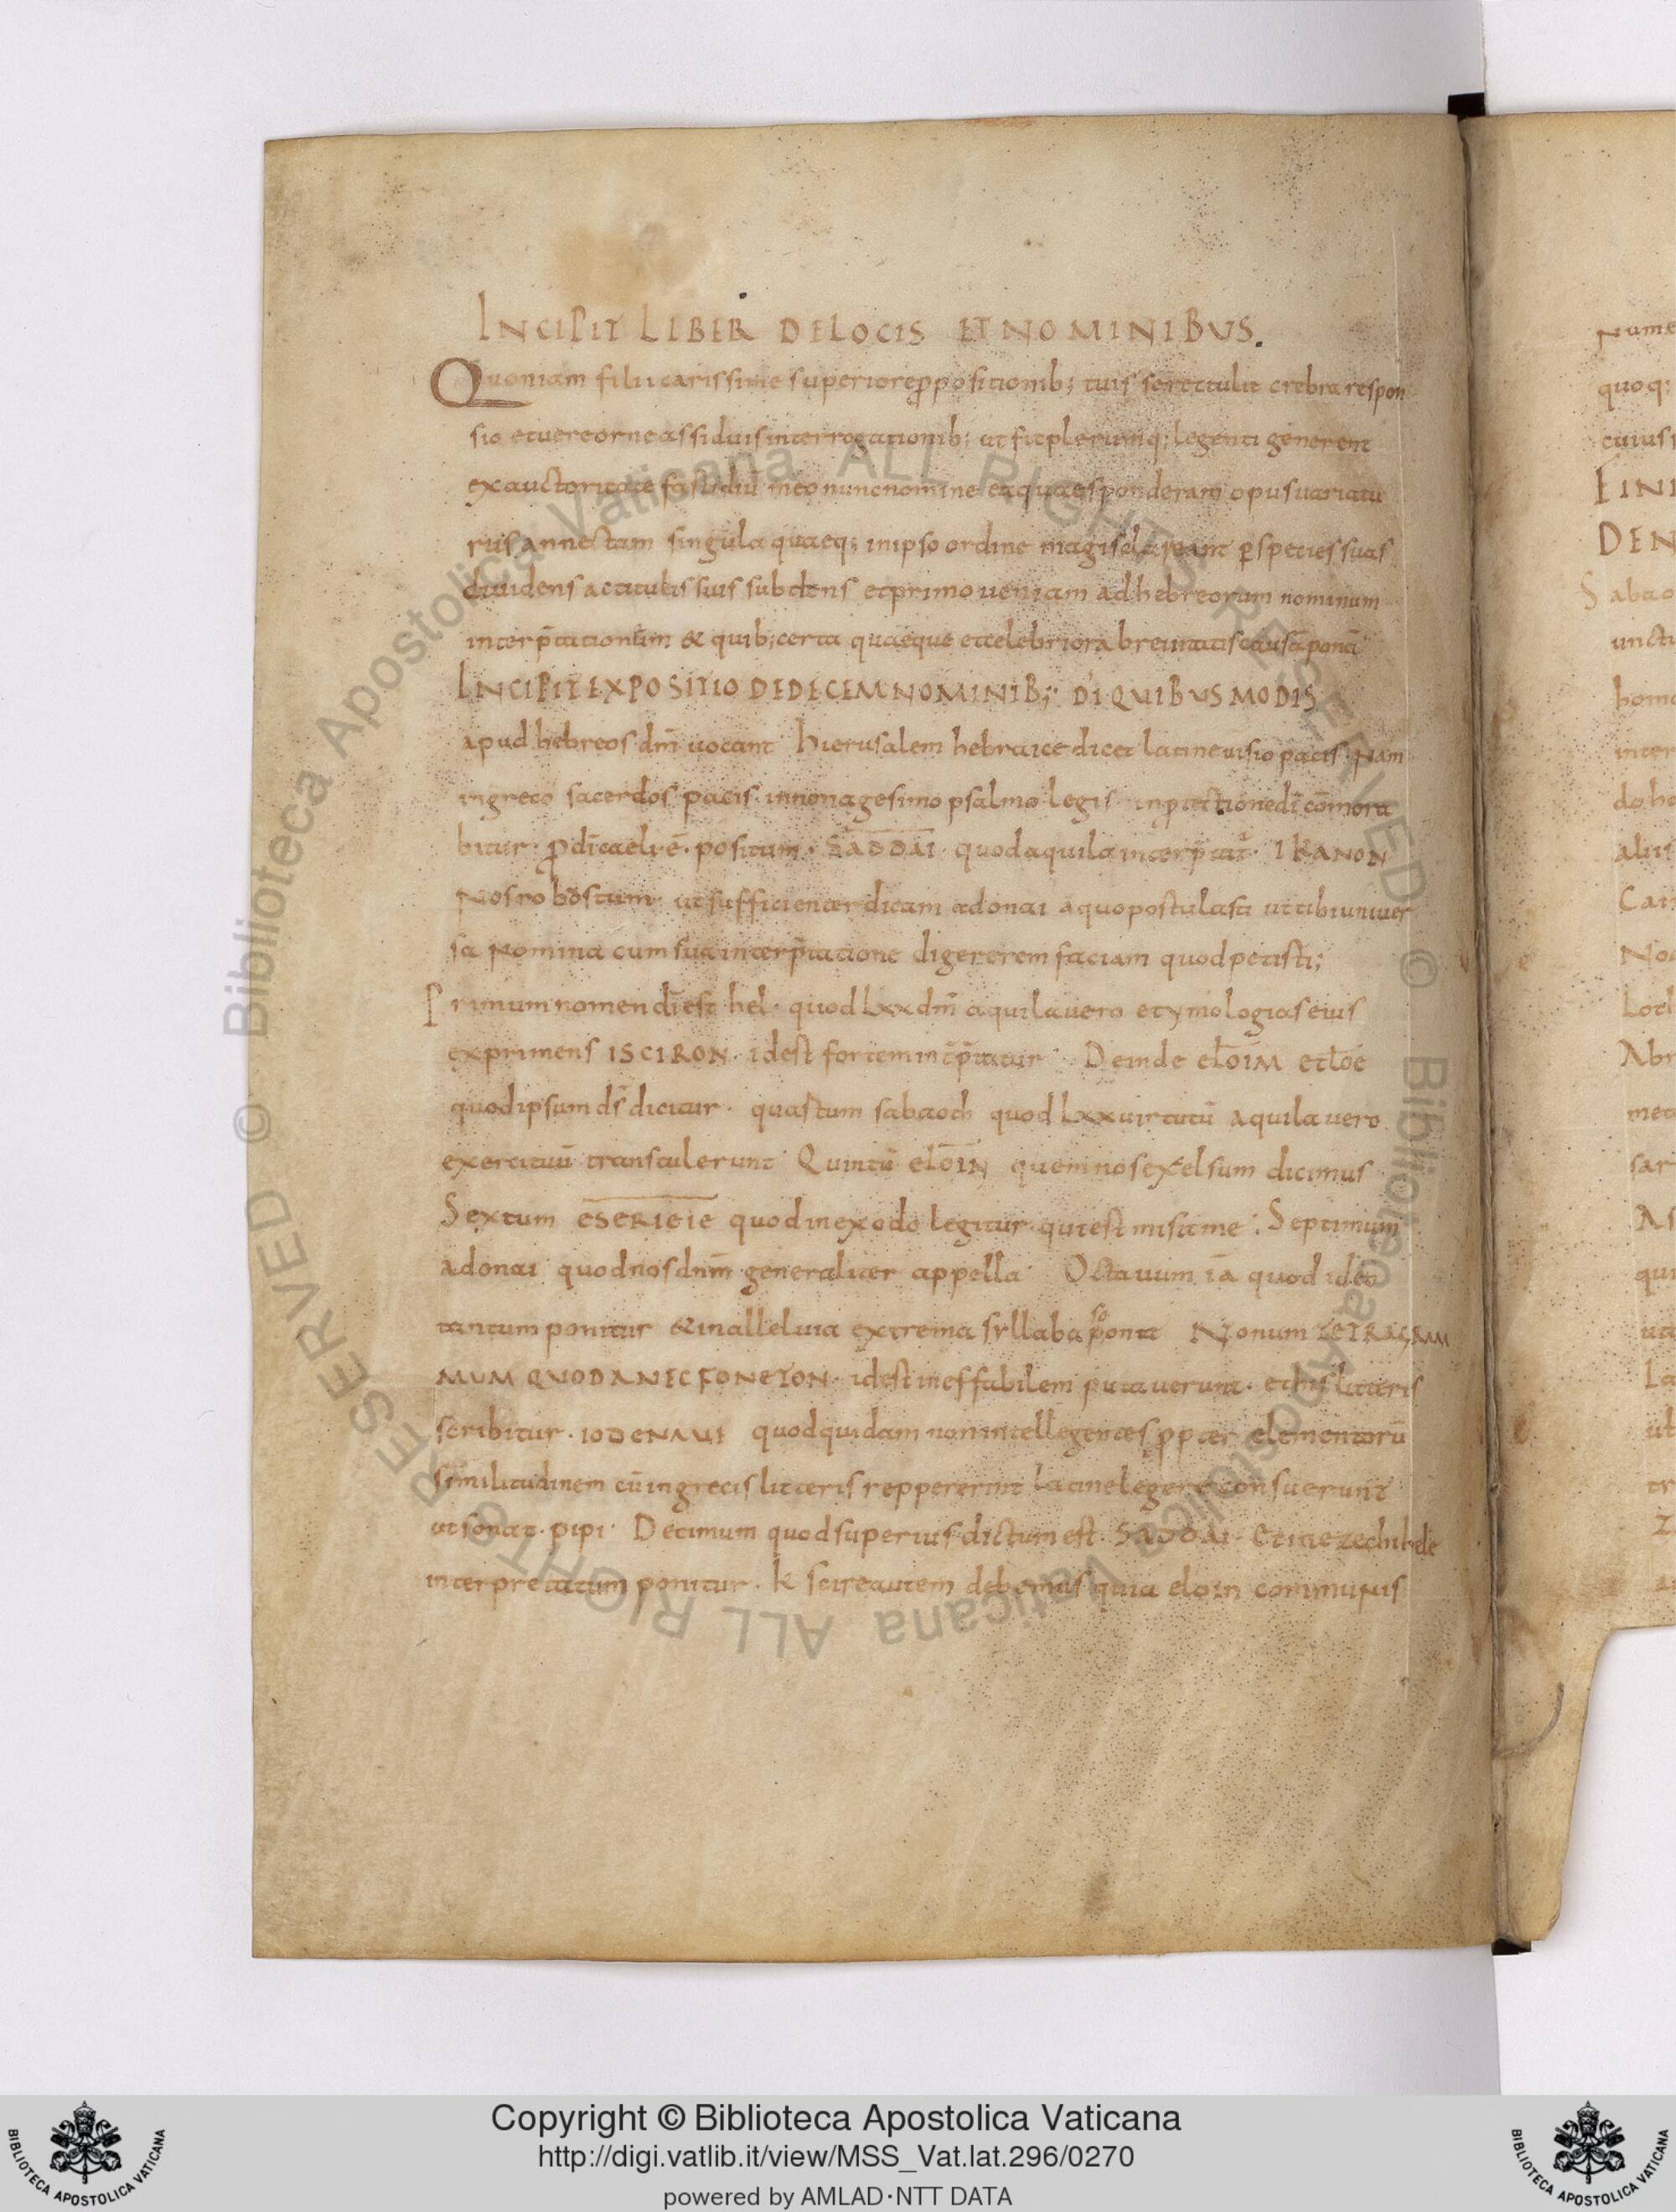 INCIPIT LIBER DE LOCIS ET NOMINIBVS.
Quoniam filii carissime superiore p̱positionib; tuis se rettulit crebra respon
sio et uereor ne assiduis interrogationib; ut fit plerumq; legenti generent
ex auctoritate fastidiū in eo nunc nomine ea quae sponderam opus uariatu
rus annectam singula quaeq; in ipso ordine magis ꝑ species suas
diuidens ac titulis suis subdens et primo ueniam ad hebreorum nominum
interp̄tationum & quib; certa quaeque et celebriora breuitatis causā ponā
INCIPIT EXPOSITIO DE DECEM NOMINIB; DI QUIBUS MODIS
apud hebreos dm̄ uocant hierusalem hebraice dicet latine uisio pacis. Nam
in greco sacerdos pacis. in nonagesimo psalmo legis in ptectione dī cōmora
bitur. ꝓ dī caeli ē. positum. SADDAI quod aquila interp̄tat̄. IKANON
Nos robostum ut sufficienter dicam adonai a quo postulasti ut tibi uniuer
sa Nomina cum sua interp̄tatione digererem faciam quod petisti;
Primum nomen dī est hel. quod Lxx dm̄ aquila uero etymologias eius
exprimens ISCIRON. idest fortem intp̄tatur Deinde eLOIM et Loe
quod ipsum ds̄ dicitur. quastum sabaoth quod Lxx uirtutū aquila uero
exercituū transtulerunt Quintū eLOIN quem nos excelsum dicimus
Sextum eSERIEIE quod in exodo legitur. qui est misit me. Septimum
adonai quod nos dnm̄ generaliter appella Octauum iā quod ideo
tantum ponitur & in alleluia extrema syllaba so ponit Nonum TETRAGRAM
MUM QUOD ANECFONETON. idest ineffabilem putauerunt. et his litteris
scribitur. IODENAUI quod quidam non intellegentes ꝓpter elementorū
similitudinem cū in grecis litteris reppererint latine legere consuerunt
ut sonat. pipi. Decimum quod superius dictum est. SADDAI. et in ezechihele
interpretatum ponitur. K scire autem debemus quia eloin communis
Nume
quoq:
cuius
FINI
DEN
Sabao
uncti
homo
inter
do ho
alii
Cai
No
Loth
Abr
met
sar
As
qui
uta
La
ut
tr
Z
Copyright © Biblioteca Apostolica Vaticana
http://digi.vatlib.it/view/MSS_Vat.lat.296/0270
powered by AMLAD·NTT DATA
BIBLIOTECA APOSTOLICA VATICANA
BIBLIOTECA APOSTOLICA VATICANA
© Biblioteca Apostolica Vaticana ALL RIGHTS RESERVED © Biblioteca Apostolica Vaticana ALL RIGHTS RESERVED